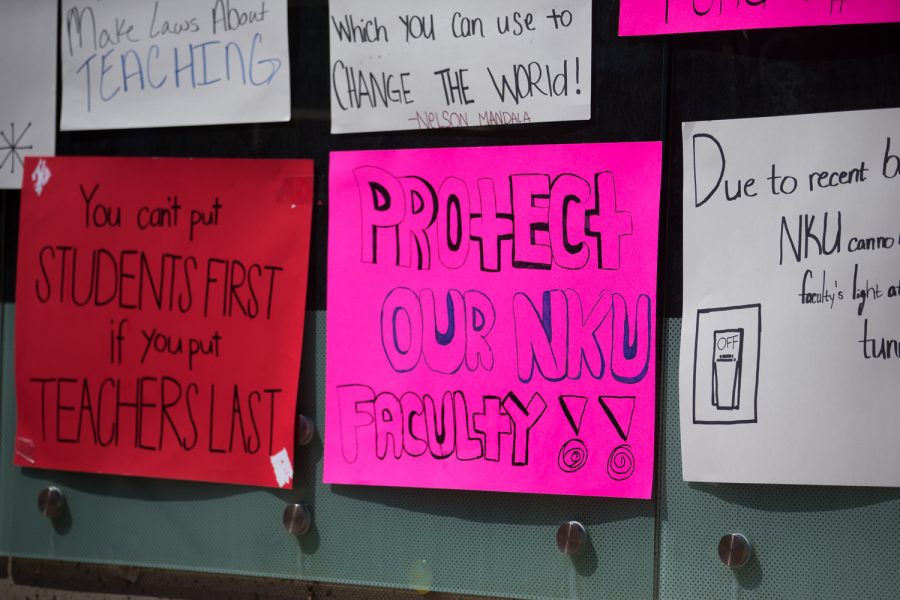 Make Laws About
TEACHING
Which You can use to
CHANGE THE WORLD!
-NELSON MANDALA
You can't put
STUDENTS FIRST
if you put
TEACHERS LAST
PROtECt
OUR NKU
FACULtY!!
Due to recent
NKU
faculty's light
OFF